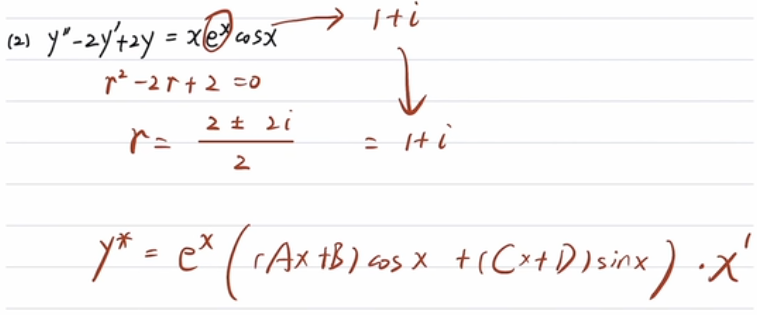 (2) y'' - 2y' + 2y = xe^x cosx → 1+i
r² - 2r + 2 = 0
r = (2 ± 2i)/2 = 1+i
y* = e^x ((Ax+B) cos x + (Cx+D) sinx) · x'